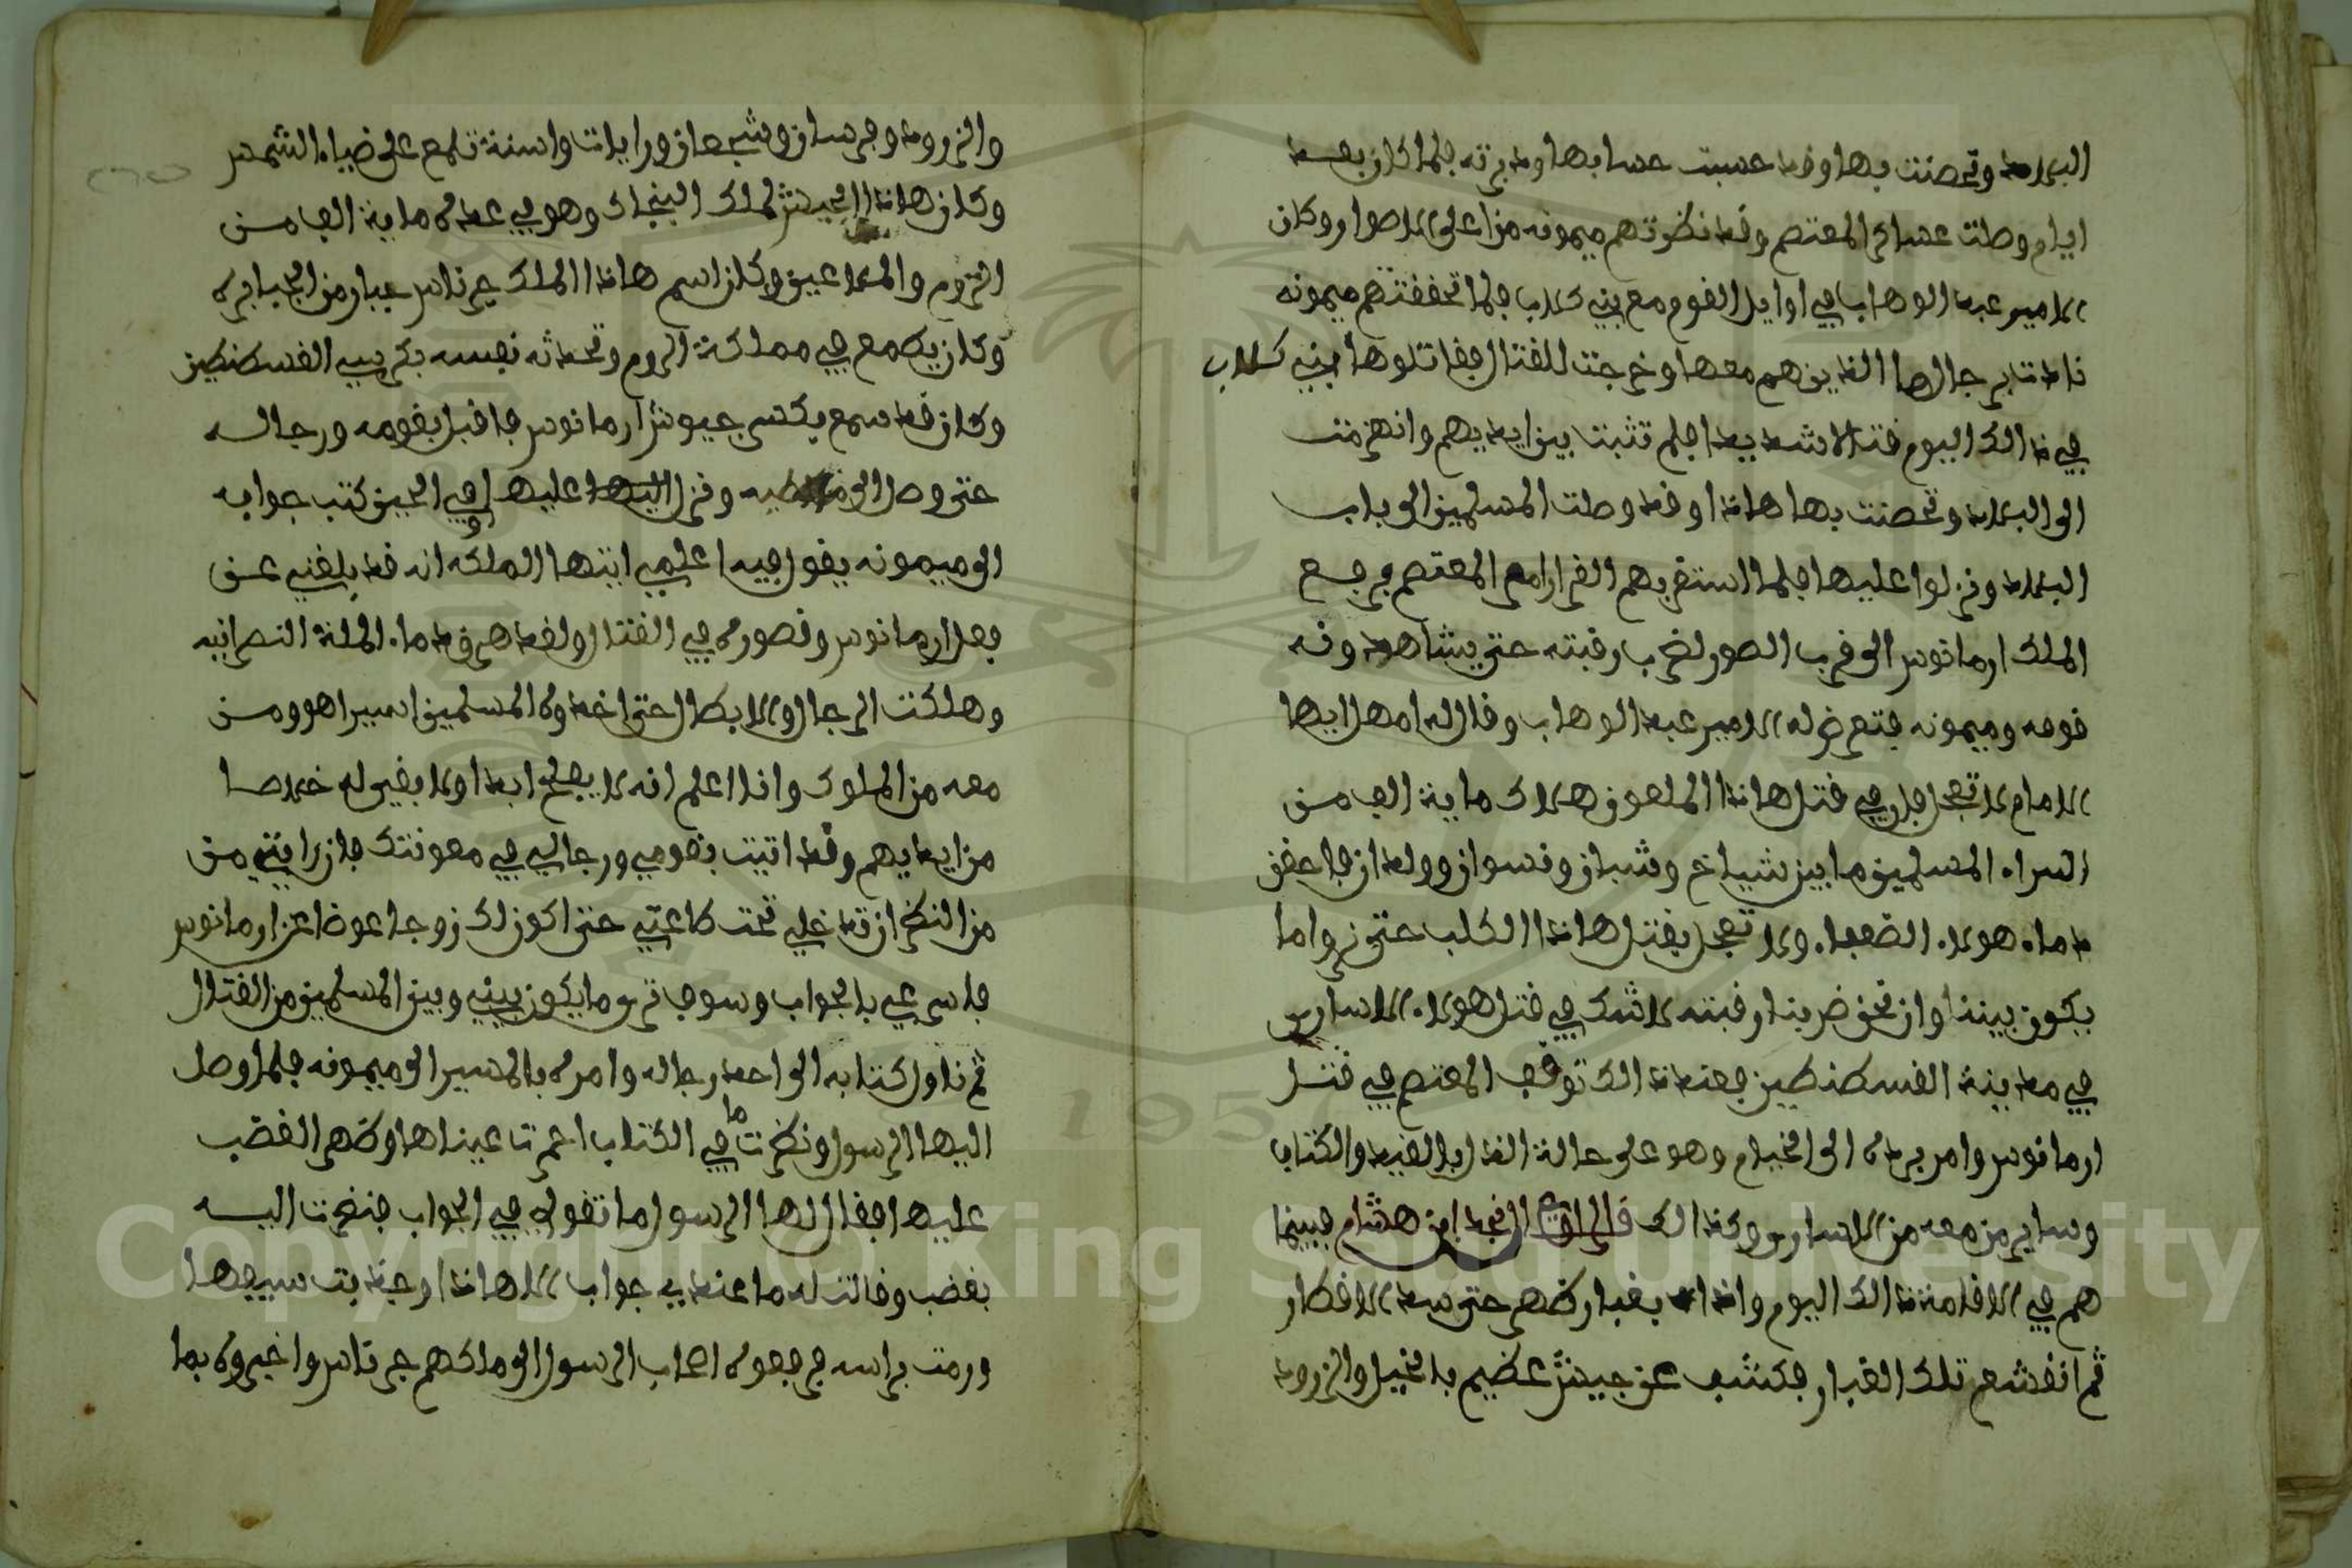 البلاد وتحصنت بها وقد حسبت حسابها ودبرته فلما كان بعد
ايام وصلت عساكر المعتصم وقد نظرتهم ميمونه من اعلى الاصوار وكان
الامير عبد الوهاب في اوايل القوم مع بني كلاب فلما تحققتهم ميمونه
نادت برجالها الذين هم معها وخرجت للقتال فقاتلوها بني كلاب
في ذالك اليوم قتالا شديدا فلم تثبت بين ايديهم وانهزمت
الى البلاد وتحصنت بها هاذا وقد وصلت المسلمين الى باب
البلاد ونزلوا عليها فلما استقر بهم القرار امر المعتصم برجع
الملك ارمانوس الى قرب الصور لضرب رقبته حتى يشاهدونه
قومه وميمونه فتعرض له الامير عبد الوهاب وقال له امهل ايها
الامام لا تعجل فان في قتل هاذا الملعون هلاك ماية الف من
اسراء المسلمين ما بين شياخ وشبان ونسوان وولدان فاحقن
دماء هولاء الضعفاء ولا تعجل بقتل هاذا الكلب حتى نروا ما
يكون بيننا وان نحن ضربنا رقبته لا شك في قتل هولاء الاسارى
في مدينة القسطنطين فعند ذالك توقف المعتصم في قتل
ارمانوس وامر برده الى الخيام وهو على حالة الذل بالقيد والكتاف
وساير من معه من الاسارى وكذالك قال الراوي النجد ابن هشام فبينما
هم في الاقامة ذالك اليوم واذا بغبار ظهر حتى سد الاقطار
ثم انقشع تلك الغبار فكشف عن جيش عظيم بالخيل والزرود
والزرود وفرسان وشجعان ورايات واسنة تلمع على ضياء الشمس
وكان هاذا الجيش لملك البنجاك وهو في عدة ماية الف من
الروم والملاعين وكان اسم هاذا الملك جرناس جبار من الجبابرة
وكان يطمع في مملكة الروم وتحدثه نفسه بكرسي القسطنطين
وكان قد سمع بكسر جيوش ارمانوس فاقبل بقومه ورجاله
حتى وصل الى ونزل عليها وفي الحين كتب جوابه
الى ميمونه يقول فيه اعلمي ايتها الملكه انه قد بلغني عن
فعل ارمانوس وقصوره في القتال ولقد هرق دماء الملة النصرانيه
وهلكت الرجال والابطال حتى اخدوه المسلمين اسيرا هو ومن
معه من الملوك وانا اعلم انه لا يفلح ابدا ولا بقي له خلاصا
من ايديهم وقد اتيت بقومي ورجالي في معونتك فان رايتي من
من النظر ان تدخلي تحت طاعتي حتى اكون لك زوجا عوضا عن ارمانوس
فاسرعي بالجواب وسوف تري ما يكون بيني وبين المسلمين من القتال
ثم ناول كتابه الى احد رجاله وامره بالمسير الى ميمونه فلما وصل
اليها الرسول ونظرت ما في الكتاب احمرتا عيناها وظهر الغضب
عليها فقال لها الرسول ما تقولي في الجواب فنظرت اليه
بغضب وقالت له ما عندي جواب الا هاذا وجذبت سيفها
ورمت براسه فرجعوا اصحاب الرسول الى ملكهم جرناس واخبروه بما